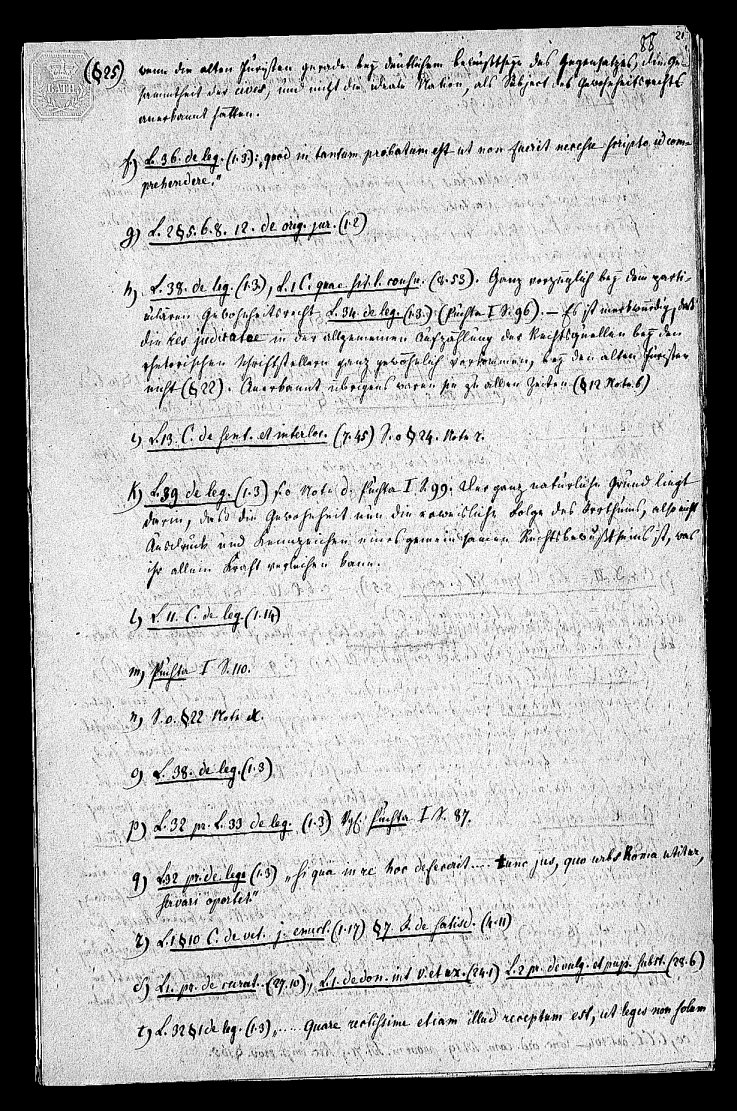 88
21
(§25) wenn die alten Juristen gerade bey deutlichem Bewußtseyn des Gegensatzes, die Ge-
sammtheit der cives, und nicht die ideale Nation, als Subject des Gewohnheitsrechts
anerkannt hatten.
f) L. 36. de leg. (1.3): „quod in tantum probatum est ut non fuerit necesse scripto id com-
prehendere."
g) L. 2 §5. 6. 8. 12. de orig. jur. (1.2)
h) L. 38. de leg. (1.3), L. 1 C. quae sit l. consu. (8.53). Ganz vorzüglich bey dem parti-
culären Gewohnheitsrecht, L. 34. de leg. (1.3.) (Puchta I S. 96). — Es ist merkwürdig, daß
die res judicatae in der allgemeinen Aufzählung der Rechtsquellen bey den
rhetorischen Schriftstellern ganz gewöhnlich vorkommen, bey den alten Juristen
nicht (§22). Anerkannt übrigens waren sie zu allen Zeiten (§12 Note 6)
i) L. 13. C. de sent. et interloc. (7.45) S. o. §24. Note r.
k) L. 39 de leg. (1.3) s. o. Note d. Puchta I. S. 99. Der ganz natürliche Grund liegt
darin, daß die Gewohnheit nun die erweisliche Folge des Irrthums, also nicht
Ausdruck und Kennzeichen eines gemeinsamen Rechtsbewußtseins ist, was
ihr allein Kraft verleihen kann.
l) L. 11. C. de leg. (1.14)
m) Puchta I S. 110.
n) S. o. §22 Note
o) L. 38. de leg. (1.3)
p) L. 32 pr. L. 33 de leg. (1.3) Vgl. Puchta I S. 87.
q) L. 32 pr. de legi (1.3) „si qua in re hoc deficerit .... tunc jus, quo urbs Roma utitur,
servari oportet"
r) L. 1 §10 C. de vet. j. enucl. (1.17) §7. J. de satisd. (4.11)
s) L. 1. pr. de curat. (27.10), L. 1. de don. int. v. et ux. (24.1) L. 2 pr. de vulg. et pup. subst. (28.6)
t) L. 32 §1 de leg. (1.3) „.... Quare rectissime etiam illud receptum est, ut leges non solum